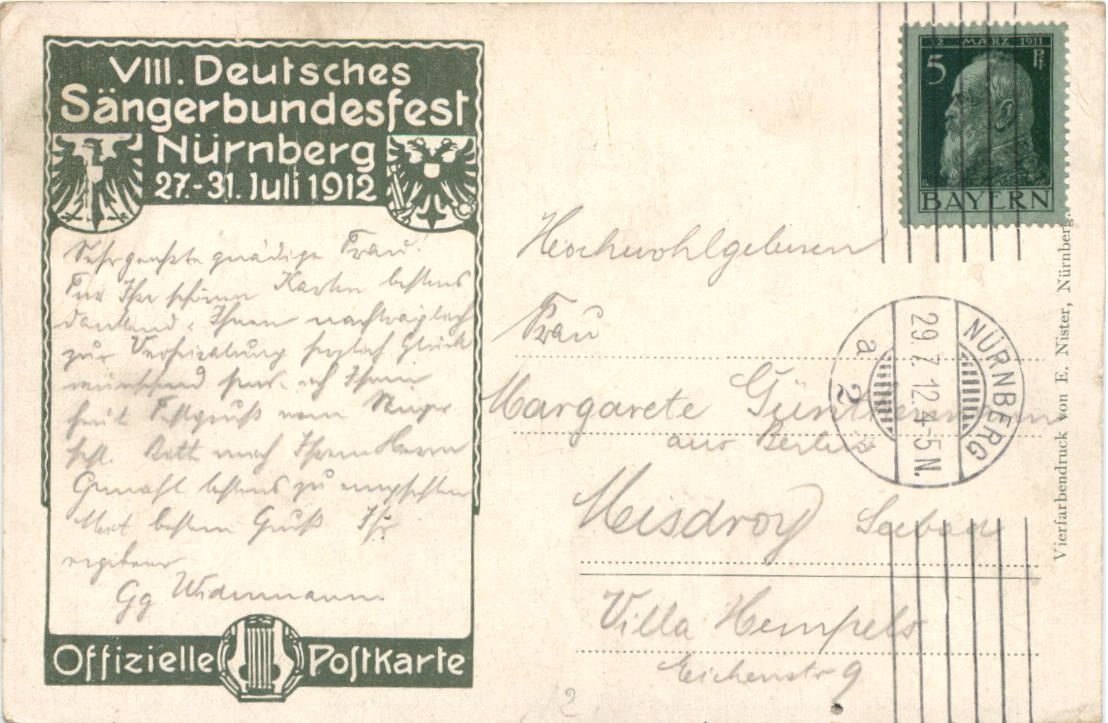 VIII. Deutsches
Sängerbundesfest
Nürnberg
27.-31. Juli 1912
Sehr geehrte gnädige Frau!
Für Ihre schönen Karten bestens
dankend u. Ihnen nachträglich
zur Verheiratung herzlich Glück
wünschend sende ich Ihnen
heut Festgruß vom Sänger
fest. Bitte mich Ihrem Herrn
Gemahl bestens zu empfehlen
Mit bestem Gruß Ihr
ergebener
Gg Widenmann.
Offizielle Postkarte
12 MÄRZ 1911
5 Pf
BAYERN
Hochwohlgeboren
Frau
Margarete Günthermann
aus Berlin
Misdroy Seebad
Villa Hempels
Eichenstr 9
NÜRNBERG
29.7.12.4-5N.
a 2
Vierfarbendruck von E. Nister, Nürnberg.
2